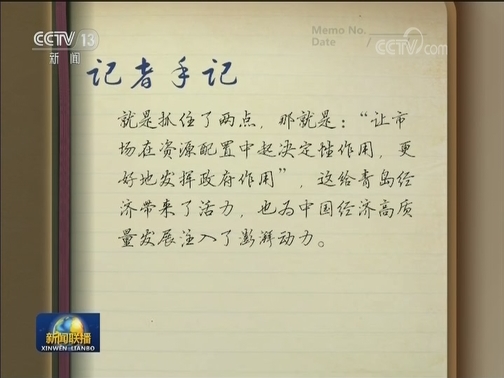 CCTV 13
新闻
Memo No.
Date /
CCTV.com
记者手记
就是抓住了两点，那就是：“让市
场在资源配置中起决定性作用，更
好地发挥政府作用”，这给青岛经
济带来了活力，也为中国经济高质
量发展注入了澎湃动力。
新闻联播
XINWEN LIANBO